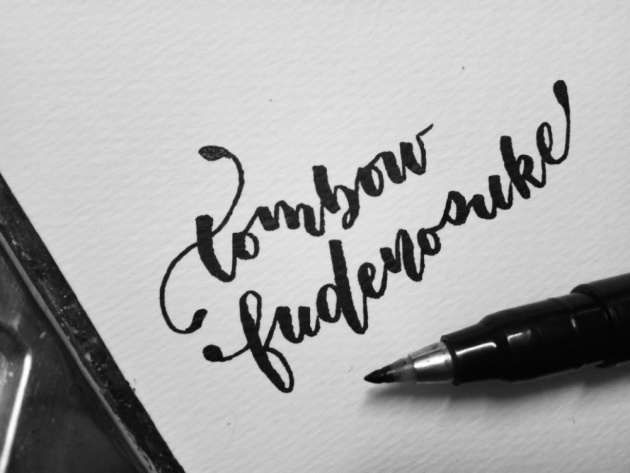 tombow
fudenosuke